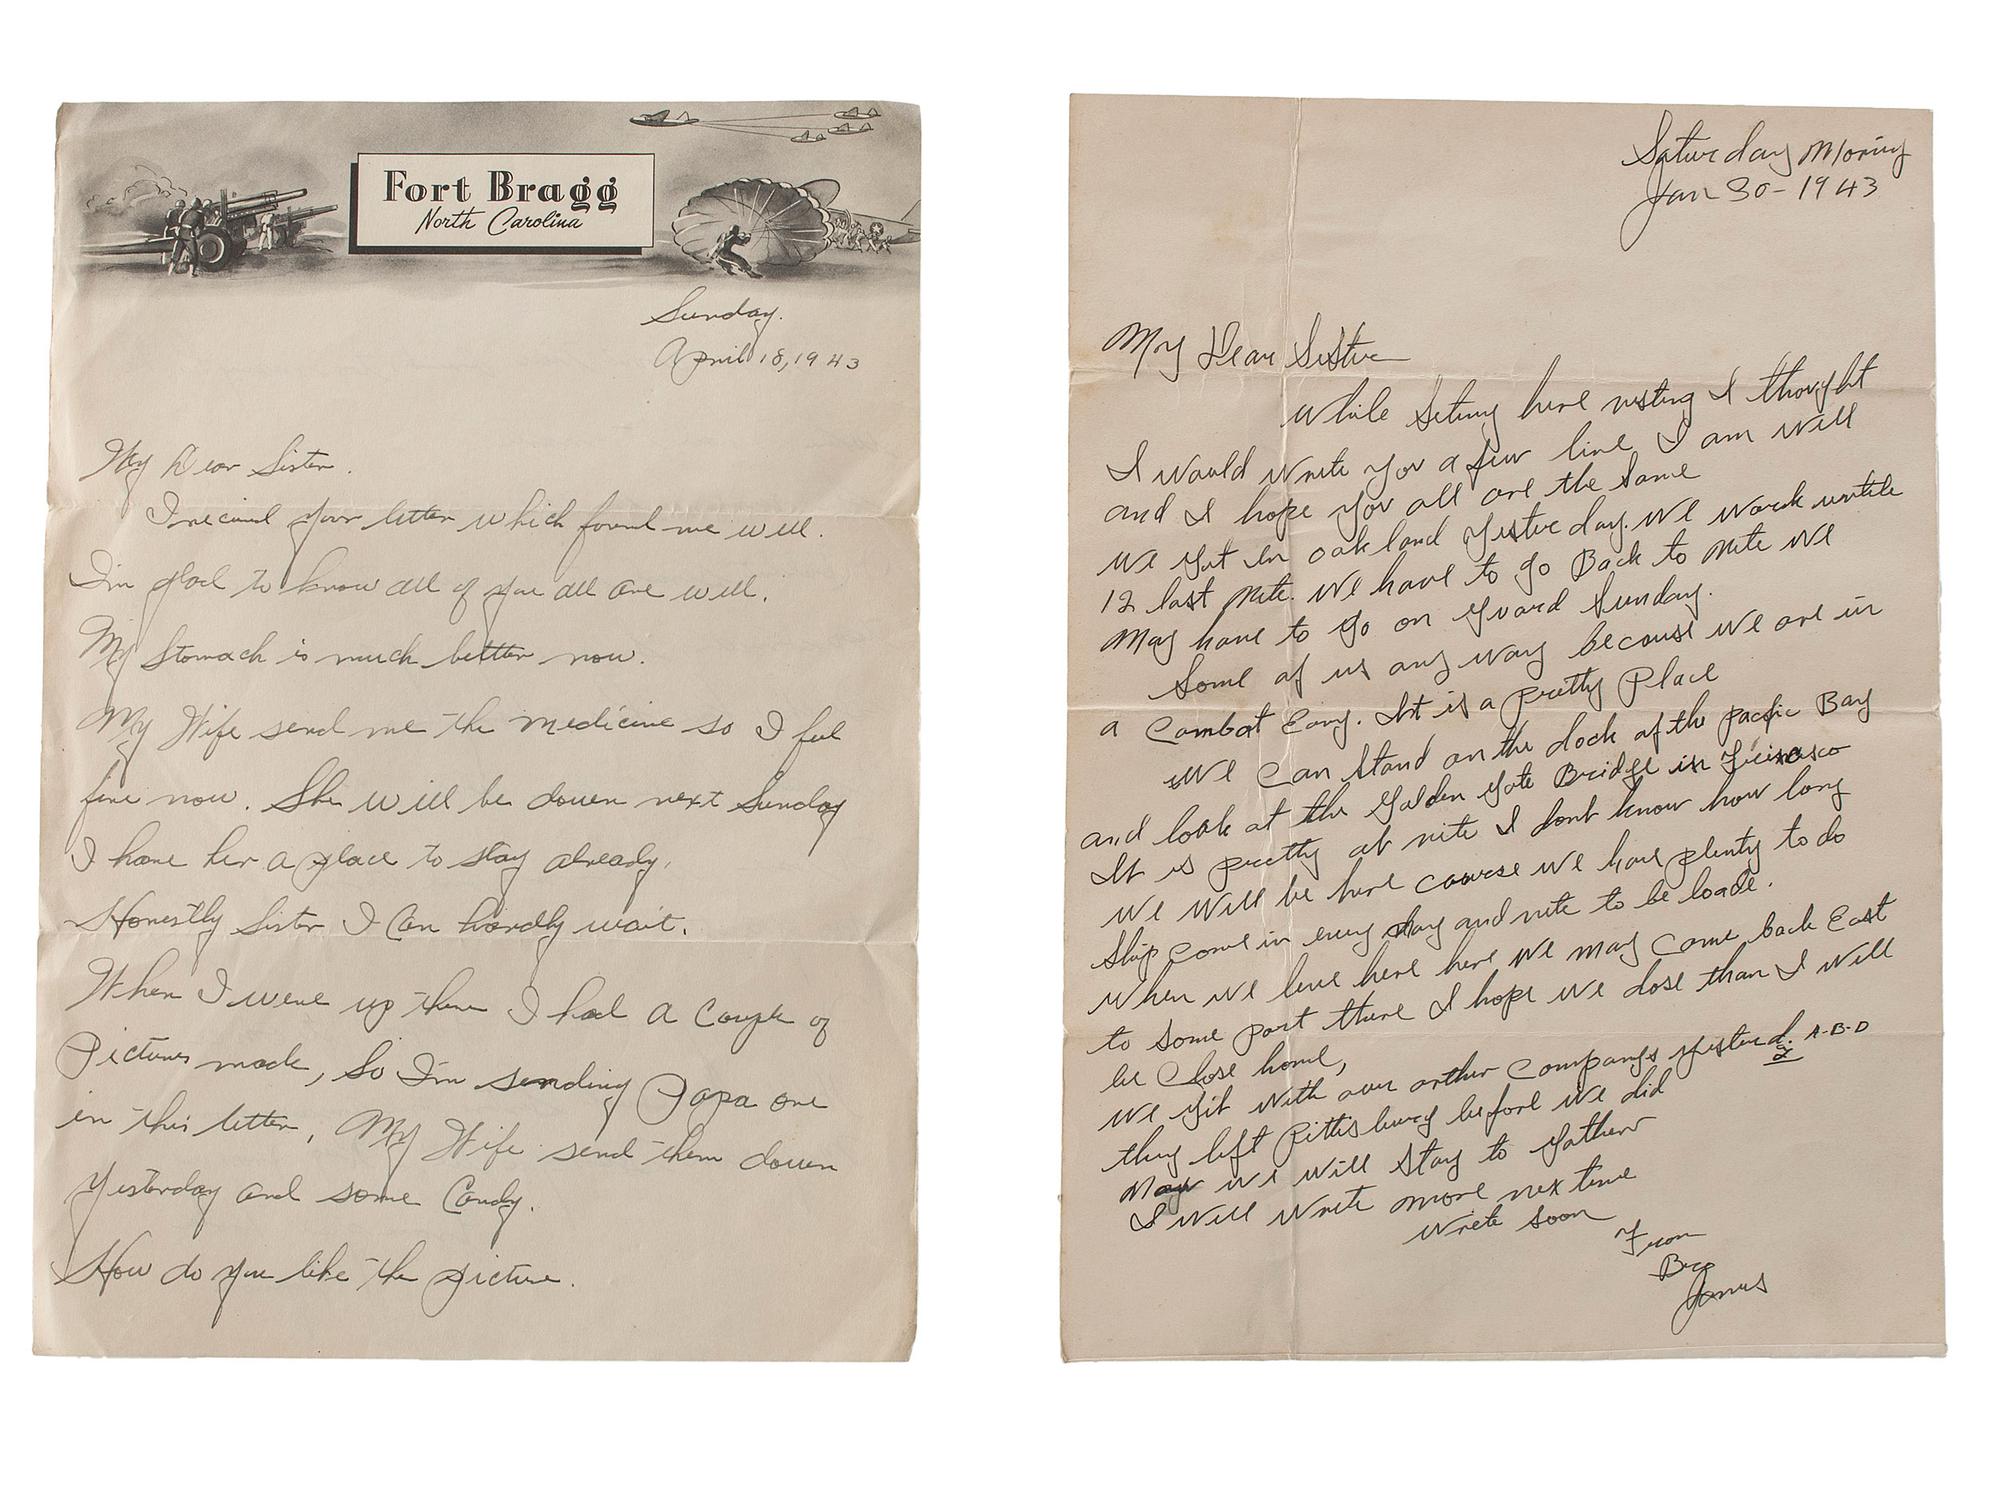 Fort Bragg
North Carolina
Sunday.
April 18, 1943
My Dear Sister.
I recieved your letter which found me well.
I'm glad to know all of you all are well.
My Stomach is much better now.
My Wife send me the medicine so I feel
fine now. She will be down next Sunday
I have her a place to stay already.
Honestly Sister I Can hardly wait.
When I were up there I had a Couple of
Pictures made, So I'm sending Papa one
in this letter, My Wife send them down
Yesterday and some Candy.
How do you like the picture.
Saturday Morning
Jan 30-1943
My Dear Sister
While Setting here resting I thought
I would write you a few line I am well
and I hope you all are the same
We got in oakland yesterday. We work untile
12 last nite. We have to go Back to nite We
May have to go on guard Sunday.
Some of us any way because we are in
a Combat Eary. It is a pretty Place
We Can Stand on the dock of the pacfic Bay
and look at the Golden Gate Bridge in
It is pretty at nite I dont know how long
We will be here course we have plenty to do
Ship come in every day and nite to be loade.
When we leve here here we may come back East
to some port there I hope we dose than I will
be Close home,
We git with our orther Companys yesterday A-B-D
they left Pittisburg before we did
May we will stay to gather
I will write more nex time
write soon
From
Bro
James